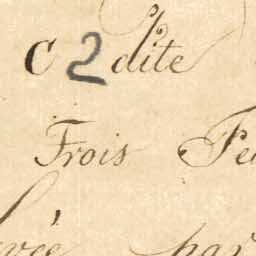 C 2 dite
Trois Fe
vée par